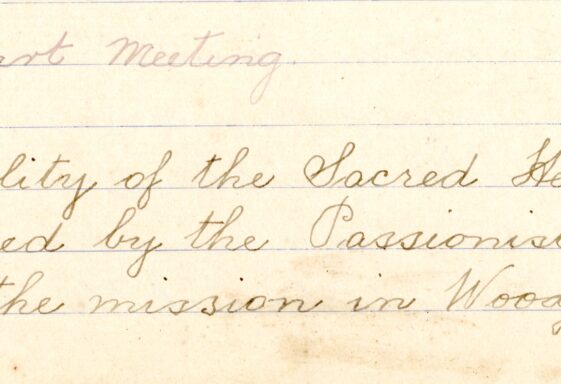 art Meeting.
lity of the Sacred He
ed by the Passionist
the mission in Wood